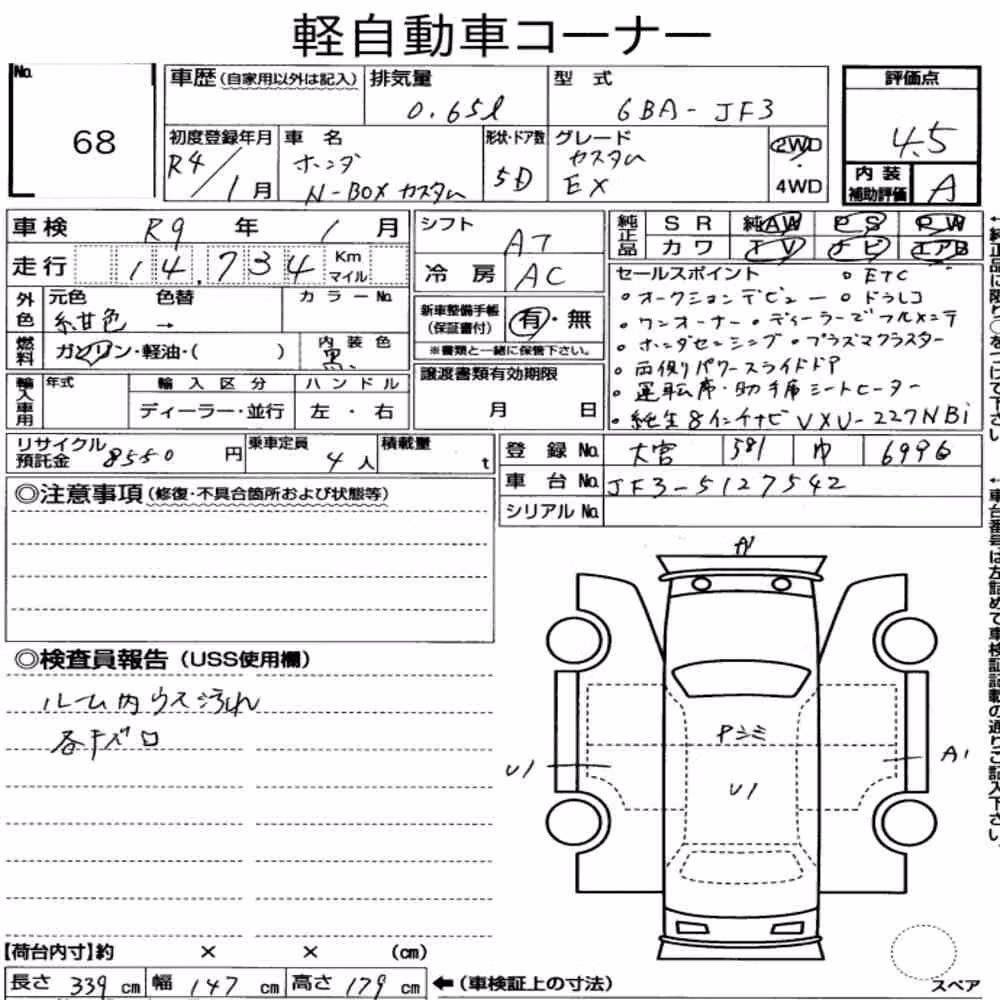 軽自動車コーナー
No. 68
車歴(自家用以外は記入) 排気量 0.65l 型式 6BA-JF3 評価点 4.5
初度登録年月 R4/1月 車名 ホンダ N-BOX カスタム 形状・ドア数 5D グレード カスタム EX 2WD・4WD
内装補助評価 A
車検 R9年 1月 シフト AT 純正品 SR 純AW PS PW
走行 14,734 Km マイル 冷房 AC カワ TV ナビ エアB
外色 元色 紺色 色替 → カラーNo.
新車整備手帳(保証書付) 有・無
※書類と一緒に保管下さい。
燃料 ガソリン・軽油・( ) 内装色 黒
輸入車用 年式 輸入区分 ディーラー・並行 ハンドル 左・右
譲渡書類有効期限 月 日
セールスポイント ◦ETC
◦オークションデビュー ◦ドラレコ
◦ワンオーナー ◦ディーラーでフルメンテ
◦ホンダセンシング ◦プラズマクラスター
◦両側パワースライドドア
◦運転席・助手席シートヒーター
◦純正8インチナビ VXU-227NBi
リサイクル預託金 8550円 乗車定員 4人 積載量 t
登録No. 大宮 581 6996
車台No. JF3-5127542
シリアルNo.
◎注意事項(修復・不具合箇所および状態等)
◎検査員報告(USS使用欄)
ルーム内ウス汚れ
各キズ
A1
U1
U1
A1
【荷台内寸】約 × × (cm)
長さ 339 cm 幅 147 cm 高さ 179 cm ←(車検証上の寸法)
スペア
←純正品に限り○をつけて下さい。
←車台番号は左詰めで車検証記載の通りご記入下さい。